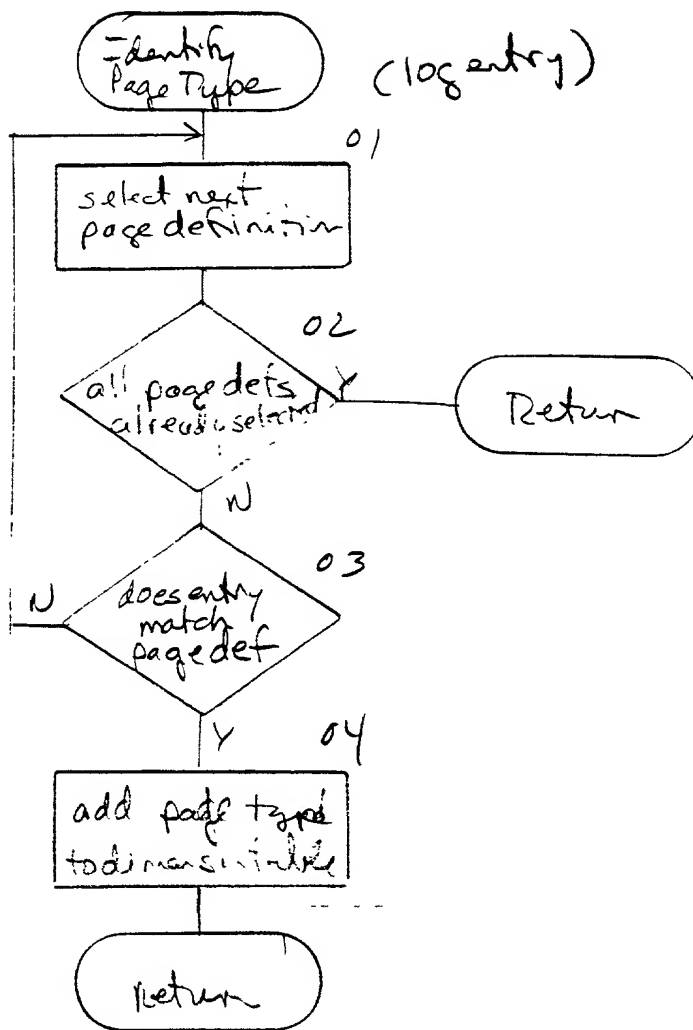 Identify
Page Type
(log entry)
01
select next
page definition
02
all page defs
already selected
Y
Return
N
03
does entry
match
page def
N
Y
04
add page type
to dimens table
Return